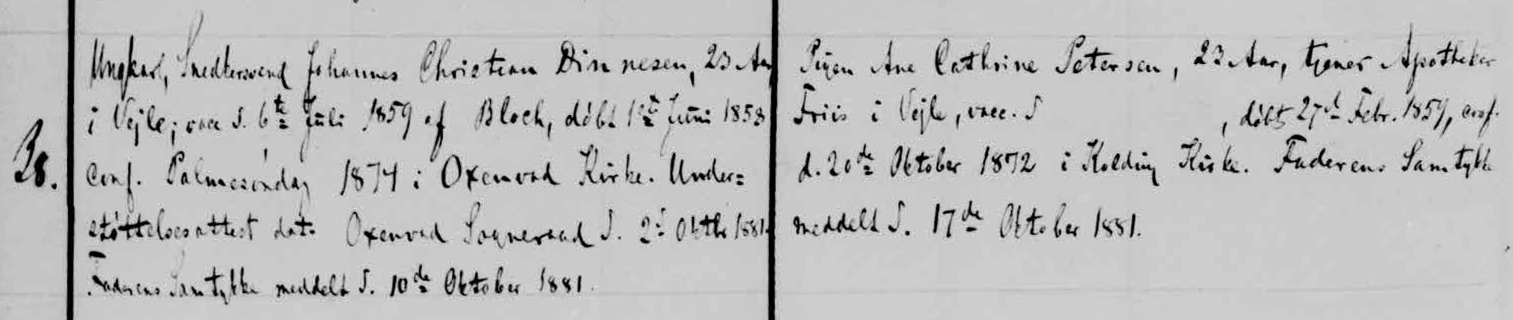 38.
Ungkarl, Snedkersvend Johannes Christian Dinnesen, 23 Aar,
i Vejle; vacc. d. 6te Juli 1859 af Bloch, døbt 1ste Juni 1858
conf. Palmesøndag 1874 i Oxenvad Kirke. Under=
støttelsesattest dat. Oxenvad Sogneraad d. 2d Oktbr 1881.
Faderens Samtykke meddelt d. 10de Oktober 1881.
Pigen Ane Cathrine Petersen, 23 Aar, tjener Apotheker
Friis i Vejle, vacc. d , døbt 27de Febr. 1859, conf.
d. 20de Oktober 1872 i Kolding Kirke. Faderens Samtykke
meddelt d. 17de Oktober 1881.